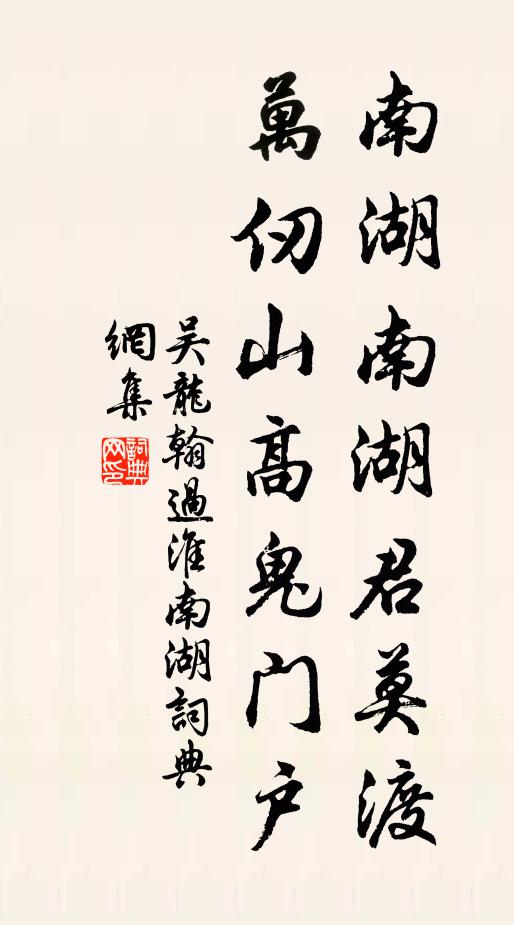 南湖南湖君莫渡
萬仞山高鬼門户
吴龍翰過淮南湖詞典
網集
詞典网印